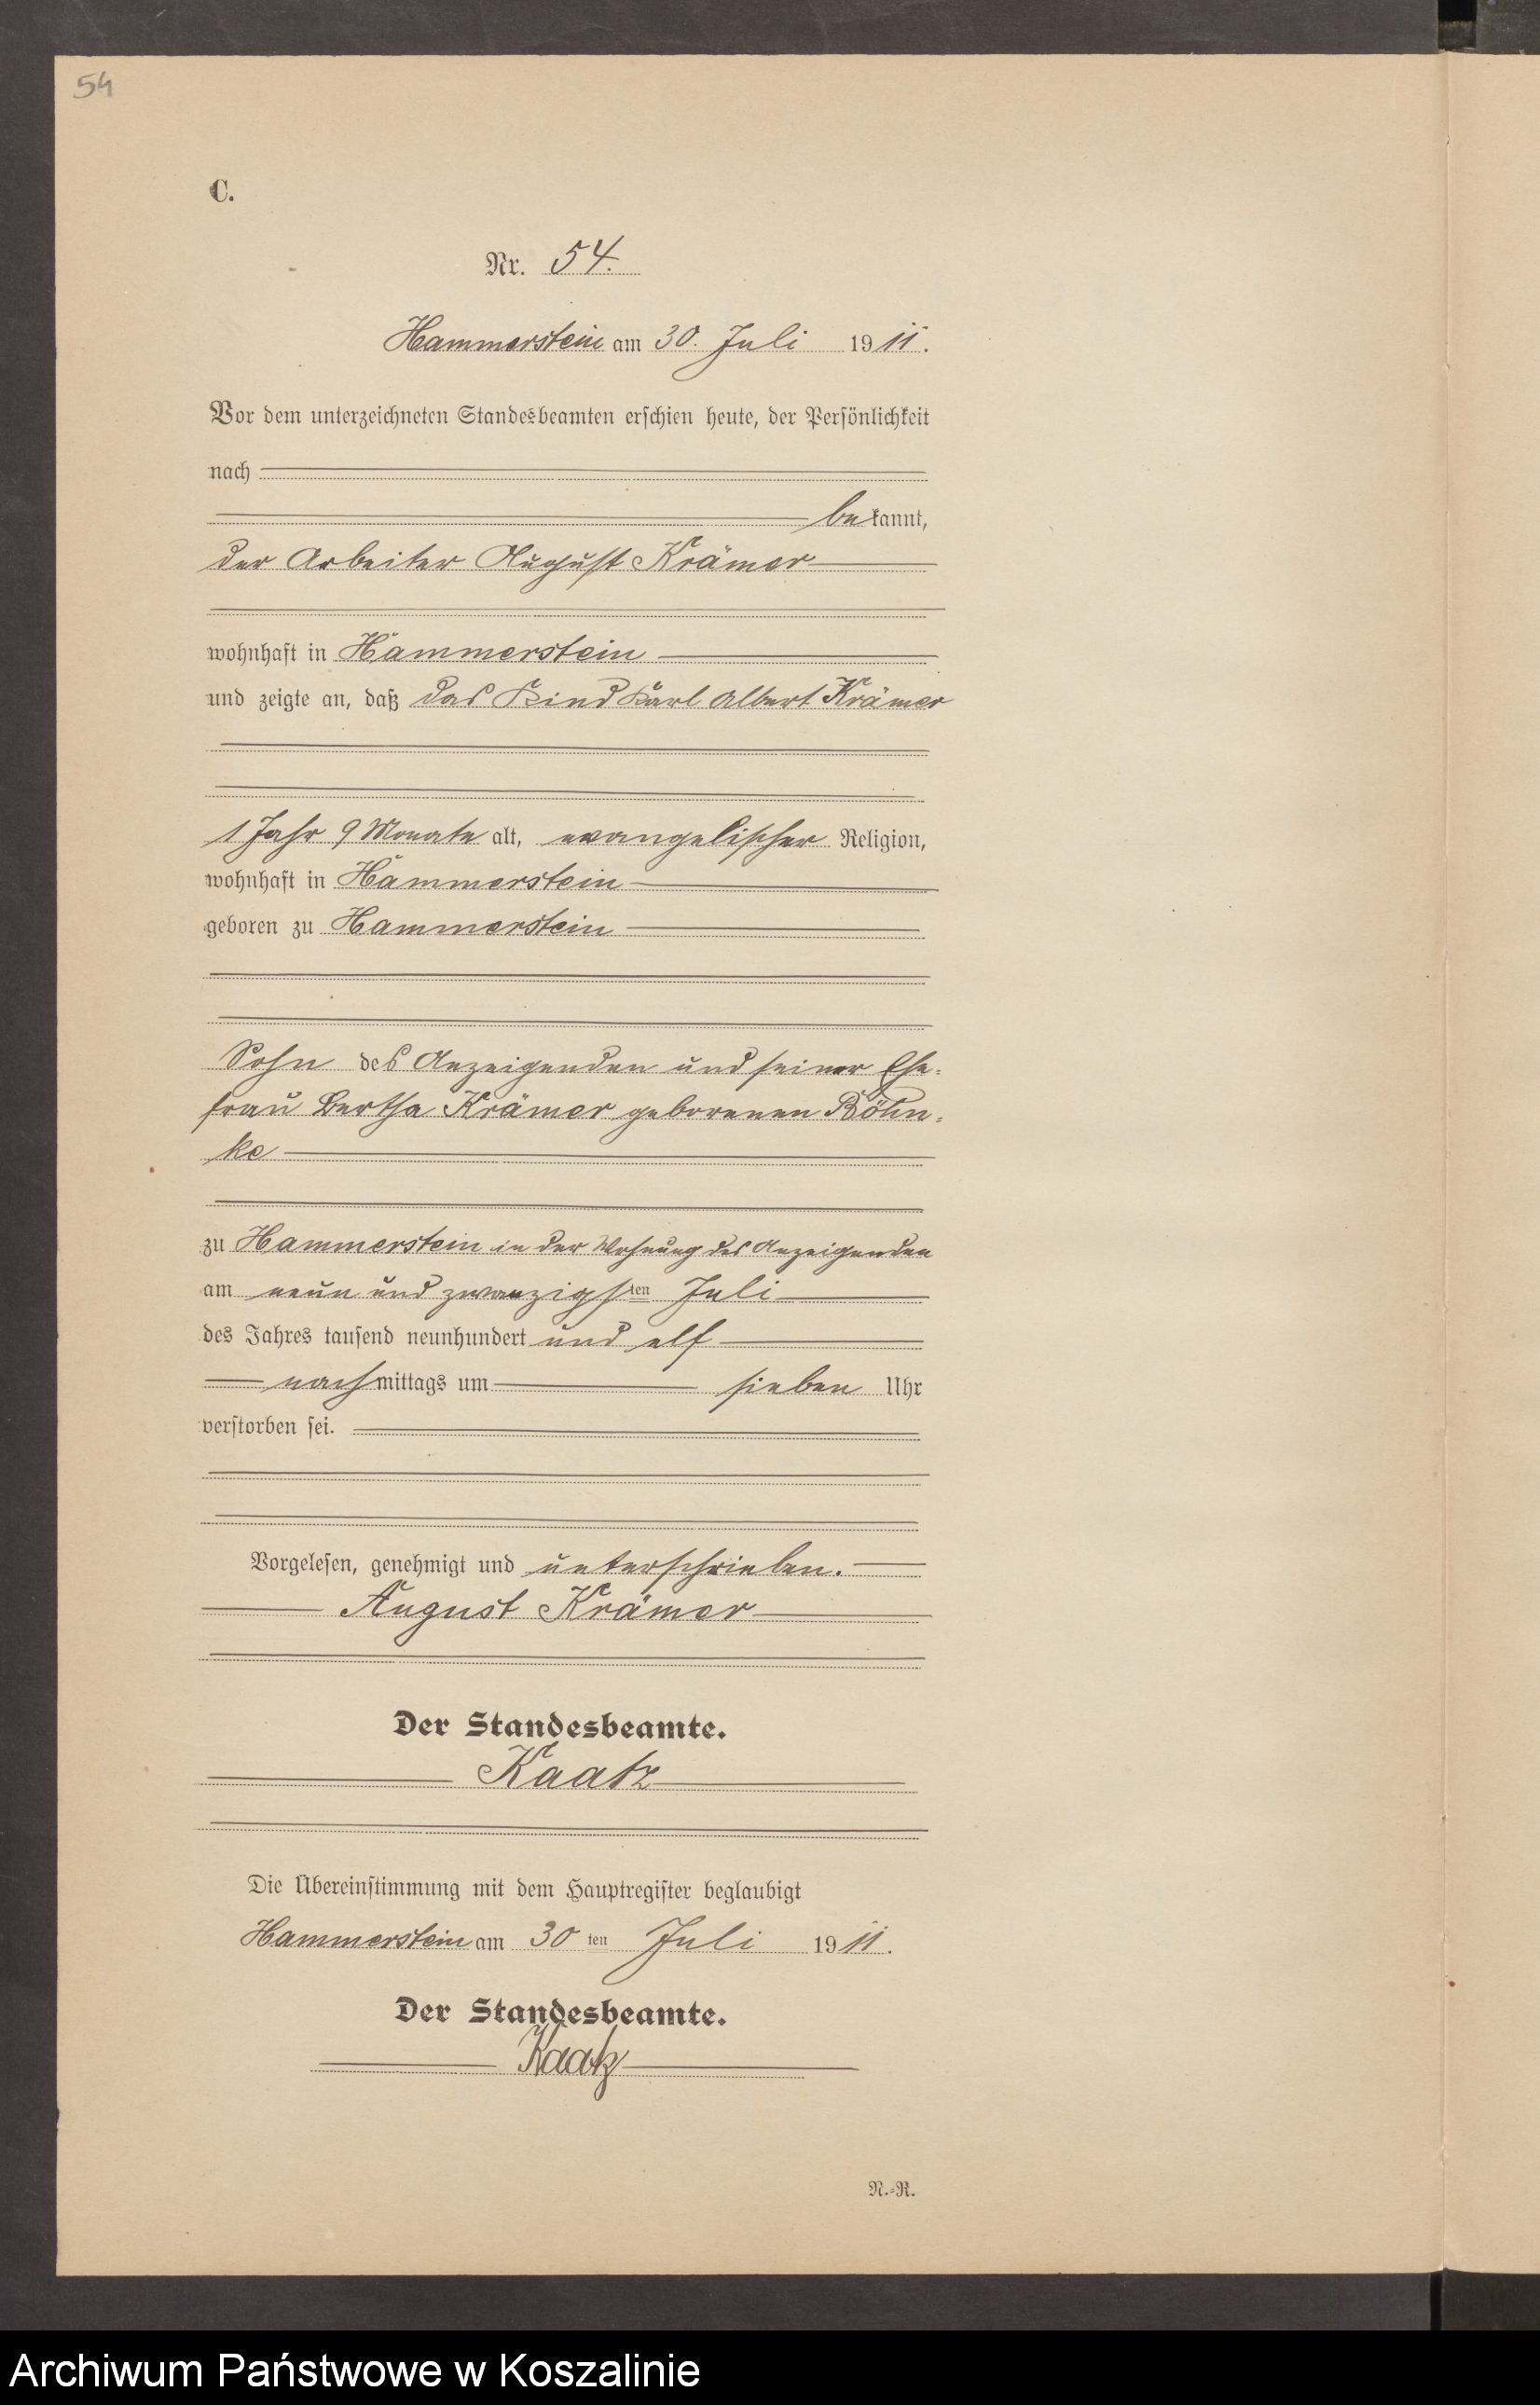 54
C.
Nr. 54.
Hammerstein am 30. Juli 1911.
Vor dem unterzeichneten Standesbeamten erschien heute, der Persönlichkeit
nach
bekannt,
der Arbeiter August Krämer
wohnhaft in Hammerstein
und zeigte an, daß das Kind Karl Albert Krämer
1 Jahr 9 Monate alt, evangelischer Religion,
wohnhaft in Hammerstein
geboren zu Hammerstein
Sohn des Anzeigenden und seiner Ehe-
frau Bertha Krämer geborenen Böhn-
ke
zu Hammerstein in der Wohnung des Anzeigenden
am neun und zwanzigsten Juli
des Jahres tausend neunhundert und elf
nachmittags um sieben Uhr
verstorben sei.
Vorgelesen, genehmigt und unterschrieben.
August Krämer
Der Standesbeamte.
Kaatz
Die Übereinstimmung mit dem Hauptregister beglaubigt
Hammerstein am 30ten Juli 1911.
Der Standesbeamte.
Kaatz
N.-R.
Archiwum Państwowe w Koszalinie